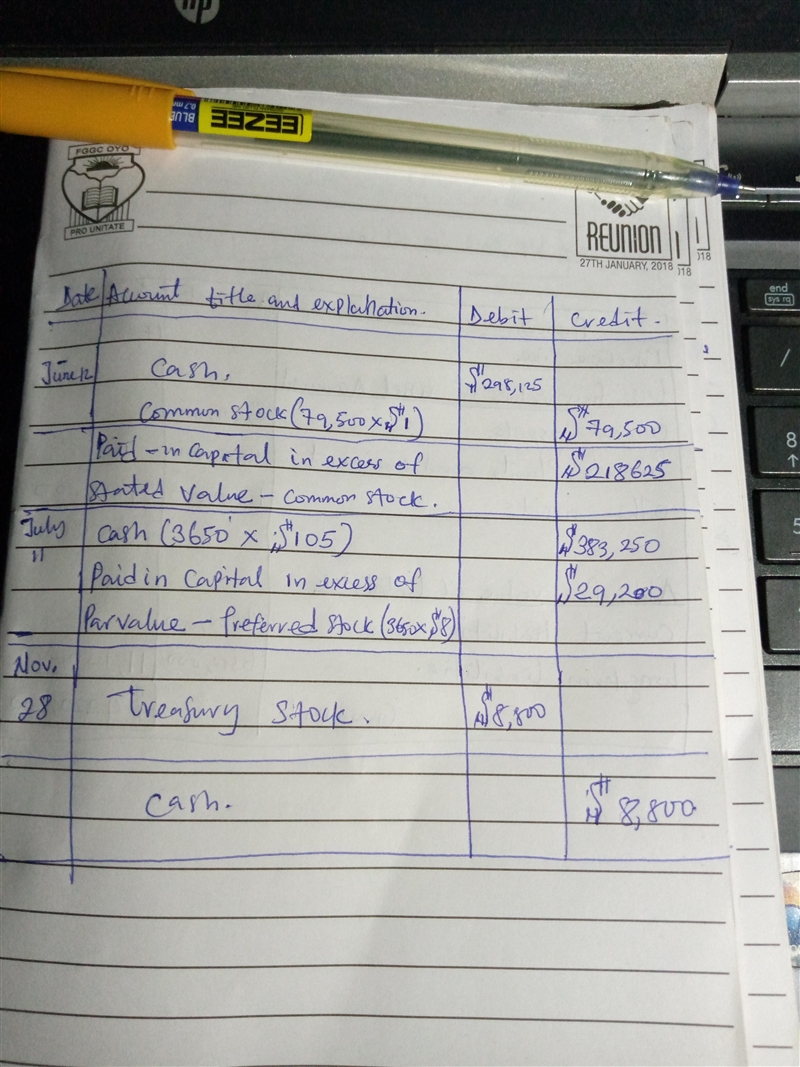 hp
EEZEE
BLUE
0.7 mm
FGGC OYO
PRO UNITATE
REUNION
27TH JANUARY, 2018
018
018
end
(sys rq)
/
8
↑
5
Date Account title and explanation. Debit Credit.
June 12 Cash, $298,125
Common stock (79,500 x $1) $79,500
Paid-in capital in excess of $218625
stated value - common stock.
July 11 Cash (3650 x $105) $383,250
Paid in capital in excess of $29,200
Par value - Preferred stock (3650 x $8)
Nov.
28 Treasury stock. $8,800
Cash. $8,800